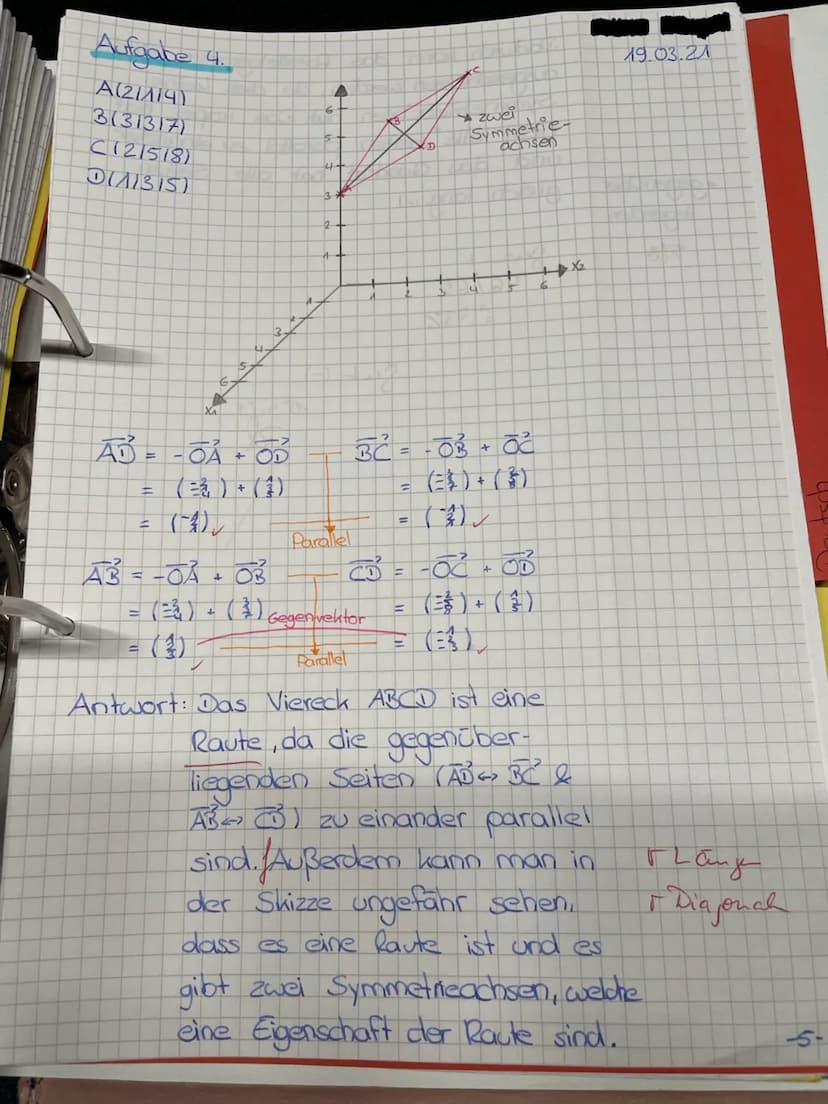 Aufgabe 4.
19.03.21
A(2|1|4)
B(3|3|7)
C(2|5|8)
D(1|3|5)
C
B
D
A
→ zwei
Symmetrie-
achsen
6
5
4
3
2
1
x₂
1 2 3 4 5 6
1
2
3
4
5
6
x₁
AD = -OA + OD BC = -OB + OC
= (-2 -1 -4) + (1 3 5) = (-3 -3 -7) + (2 5 8)
= (-1 2 1) ✓ = (-1 2 1) ✓
Parallel
AB = -OA + OB CD = -OC + OD
= (-2 -1 -4) + (3 3 7) = (-2 -5 -8) + (1 3 5)
Gegenvektor
= (1 2 3) ✓ = (-1 -2 -3) ✓
Parallel
Antwort: Das Viereck ABCD ist eine
Raute, da die gegenüber-
liegenden Seiten (AD ↔ BC &
AB ↔ CD) zu einander parallel
sind. Außerdem kann man in
der Skizze ungefähr sehen,
dass es eine Raute ist und es
gibt zwei Symmetrieachsen, welche
eine Eigenschaft der Raute sind.
Γ Länge
Γ Diagonale
-5-